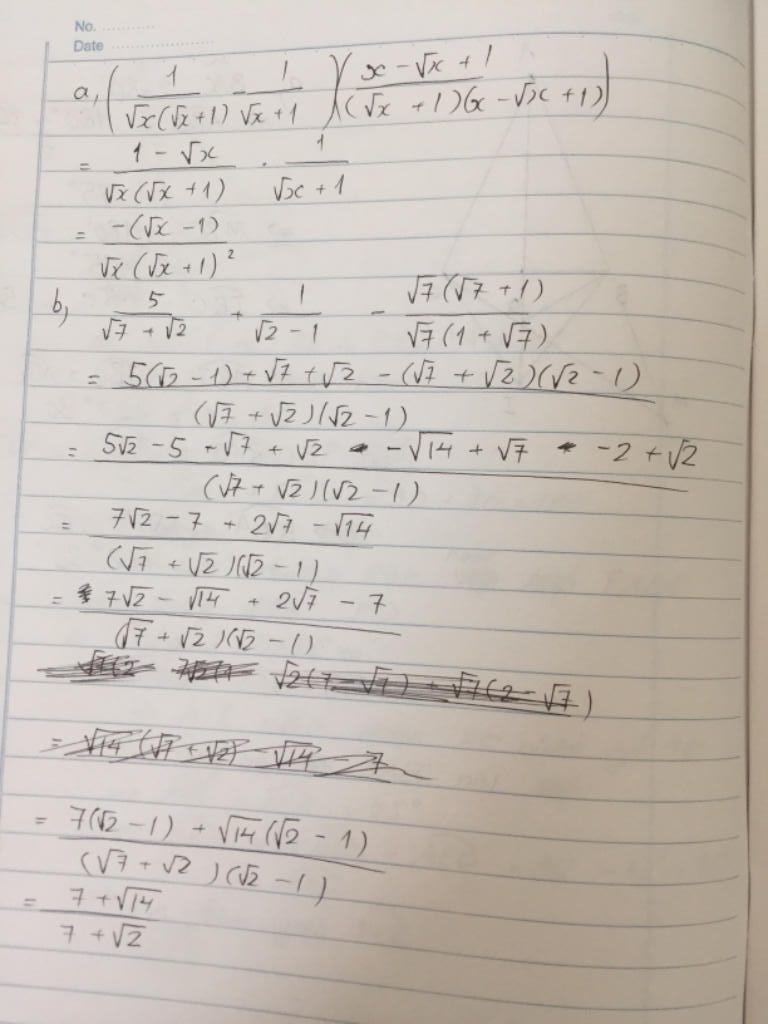 No.
Date
a, (1/(√x(√x+1)) - 1/(√x+1))((x - √x + 1)/((√x + 1)(x - √x + 1)))
= (1 - √x)/(√x(√x + 1)) . 1/(√x + 1)
= (-(√x - 1))/(√x(√x + 1)²)
b, 5/(√7 + √2) + 1/(√2 - 1) - (√7(√7 + 1))/(√7(1 + √7))
= (5(√2 - 1) + √7 + √2 - (√7 + √2)(√2 - 1))/((√7 + √2)(√2 - 1))
= (5√2 - 5 + √7 + √2 - √14 + √7 - 2 + √2)/((√7 + √2)(√2 - 1))
= (7√2 - 7 + 2√7 - √14)/((√7 + √2)(√2 - 1))
= (7√2 - √14 + 2√7 - 7)/((√7 + √2)(√2 - 1))
√2(7 - √7) + √7(2 - √7)
= √14(√7 + √2) - √14 - 7
= (7(√2 - 1) + √14(√2 - 1))/((√7 + √2)(√2 - 1))
= (7 + √14)/(7 + √2)